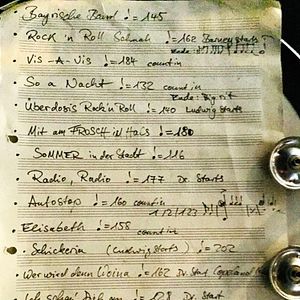 • Bayrische Band ♩=145
• ROCK 'n Roll Schuah ♩=162 Barney starts
Ende:
• Vis-A-Vis ♩=184 count in
• So a Nacht ♩=132 count in
Ende:
• Überdosis Rock'n Roll ♩=170 Ludwig starts
• Mit am FROSCH im Hals ♩=180
• SOMMER in der Stadt ♩=116
• Radio, Radio ♩=177 Dr. Starts
• Autostop ♩=160 count in
1/2/123
• Elisabeth ♩=158 count in
• Schickeria (Ludwig starts) ♩=202
• Wer wird denn ♩=162 Dr. Start
• Ich schau Dich an ♩=128 Dr. Start